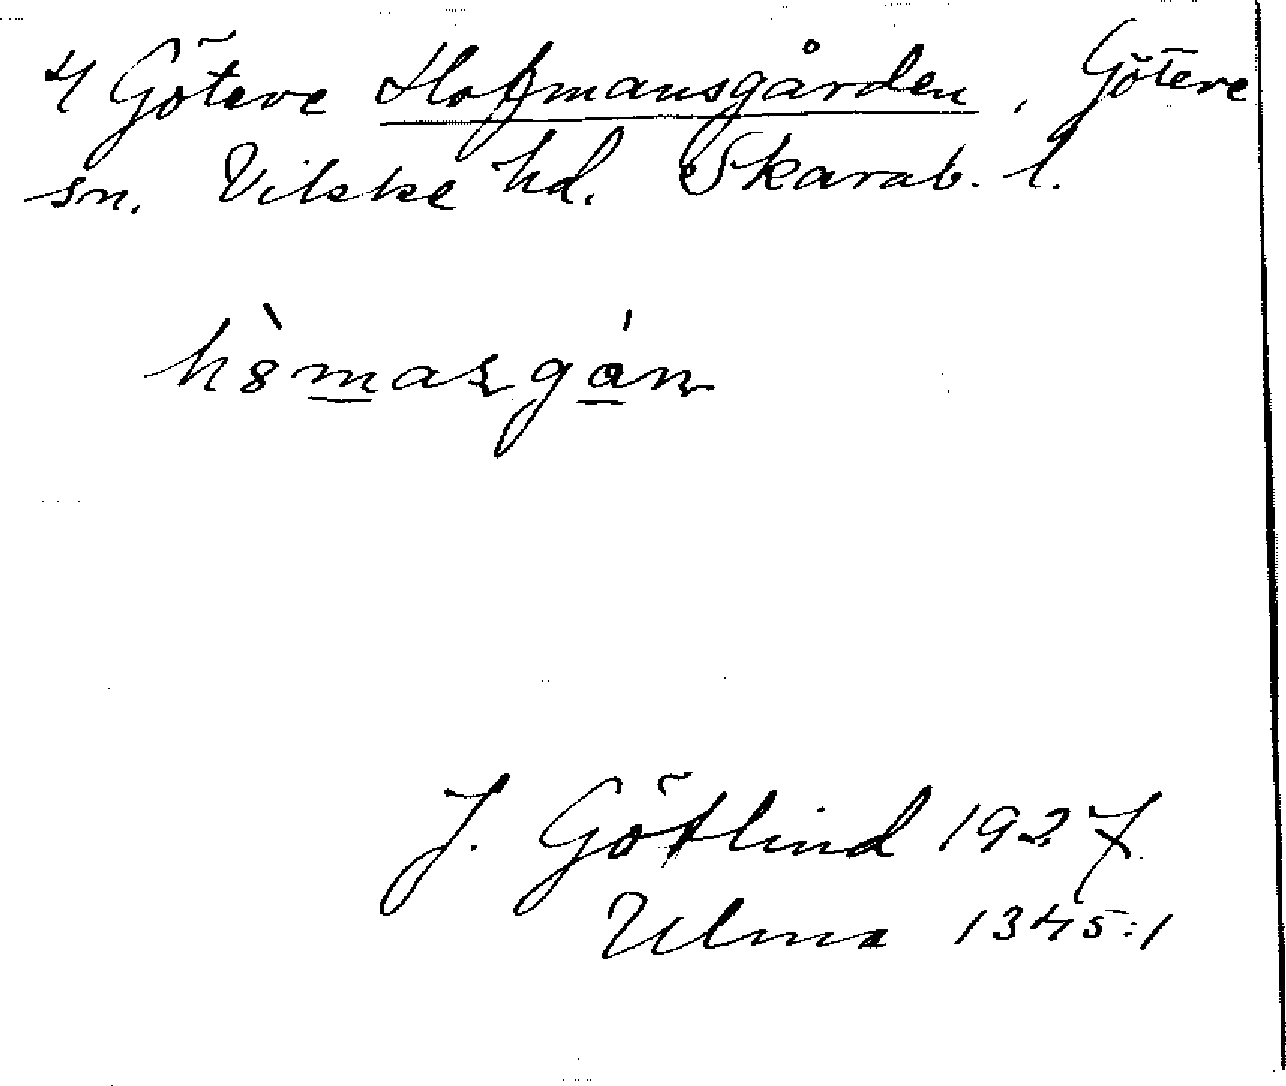 4 Göteve Hofmansgården, Göteve
sn. Vilske hd. Skarab. l.
h8̀masgán
J. Götlind 1927
Ulma 1345:1